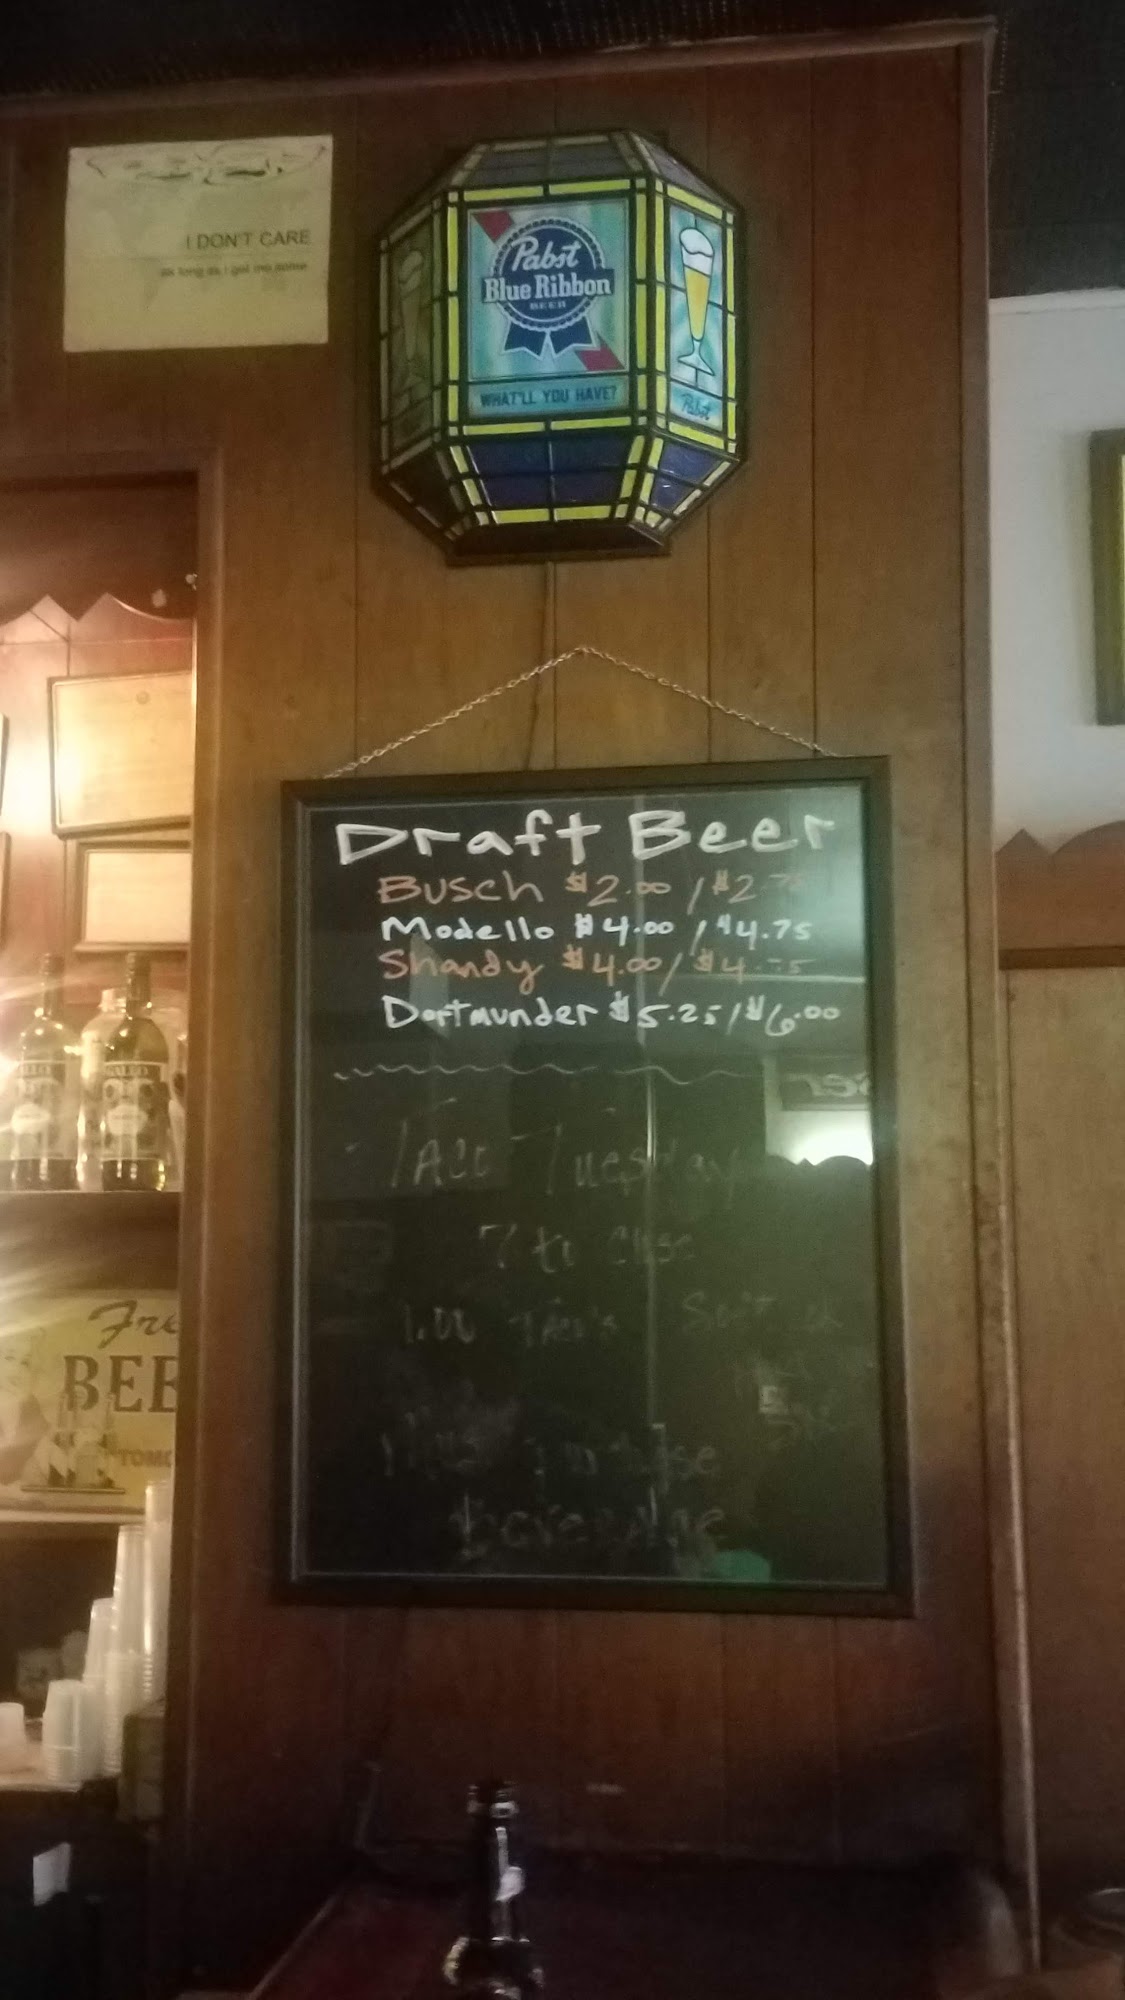 I DON'T CARE
as long as I get me some
Pabst
Blue Ribbon
BEER
WHAT'LL YOU HAVE?
Pabst
Draft Beer
Busch $2.00 / $2.75
Modello $4.00 / $4.75
Shandy $4.00 / $4.75
Dortmunder $5.25 / $6.00
Taco Tuesday
7 to Close
1.00 Taco's
purchase
beverage
GALLO
Fre
BEE
TOMO